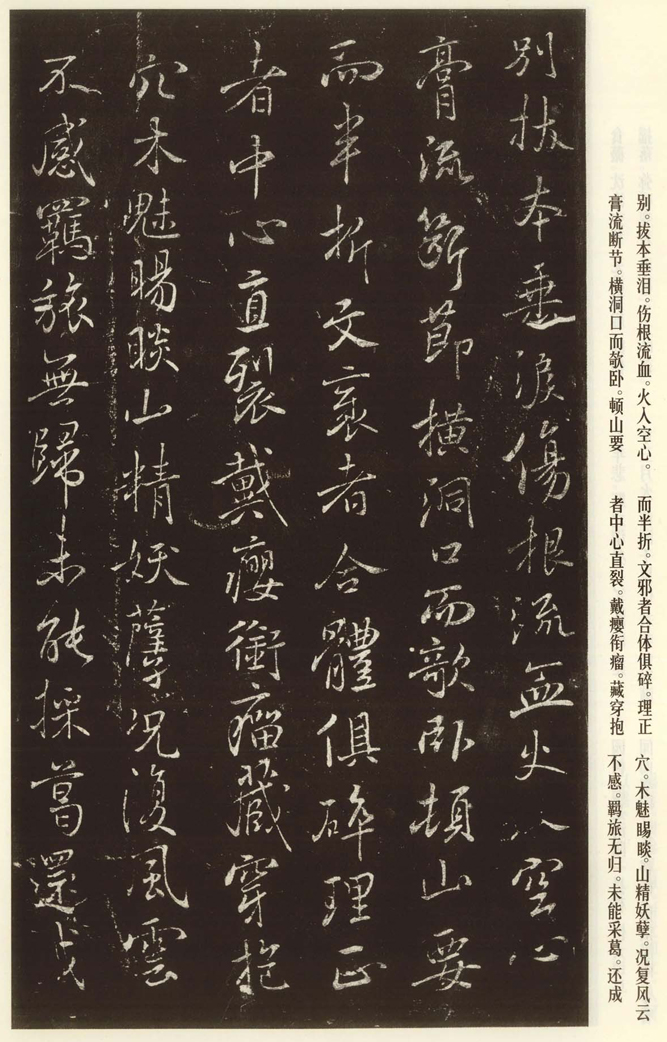 别。拔本垂泪。伤根流血。火入空心。
膏流断节。横洞口而欹卧。顿山要
而半折。文邪者合体俱碎。理正
者中心直裂。戴瘿衔瘤。藏穿抱
穴。木魅睗睒。山精妖孽。况复风云
不感。羁旅无归。未能采葛。还成
别拔本垂淚傷根流血火入空心
膏流斷節橫洞口而欹卧頓山要
而半折文衺者合體俱碎理正
者中心直裂戴癭銜瘤藏穿抱
穴木魅睗睒山精妖孽況復風雲
不感羈旅無歸未能採葛還成